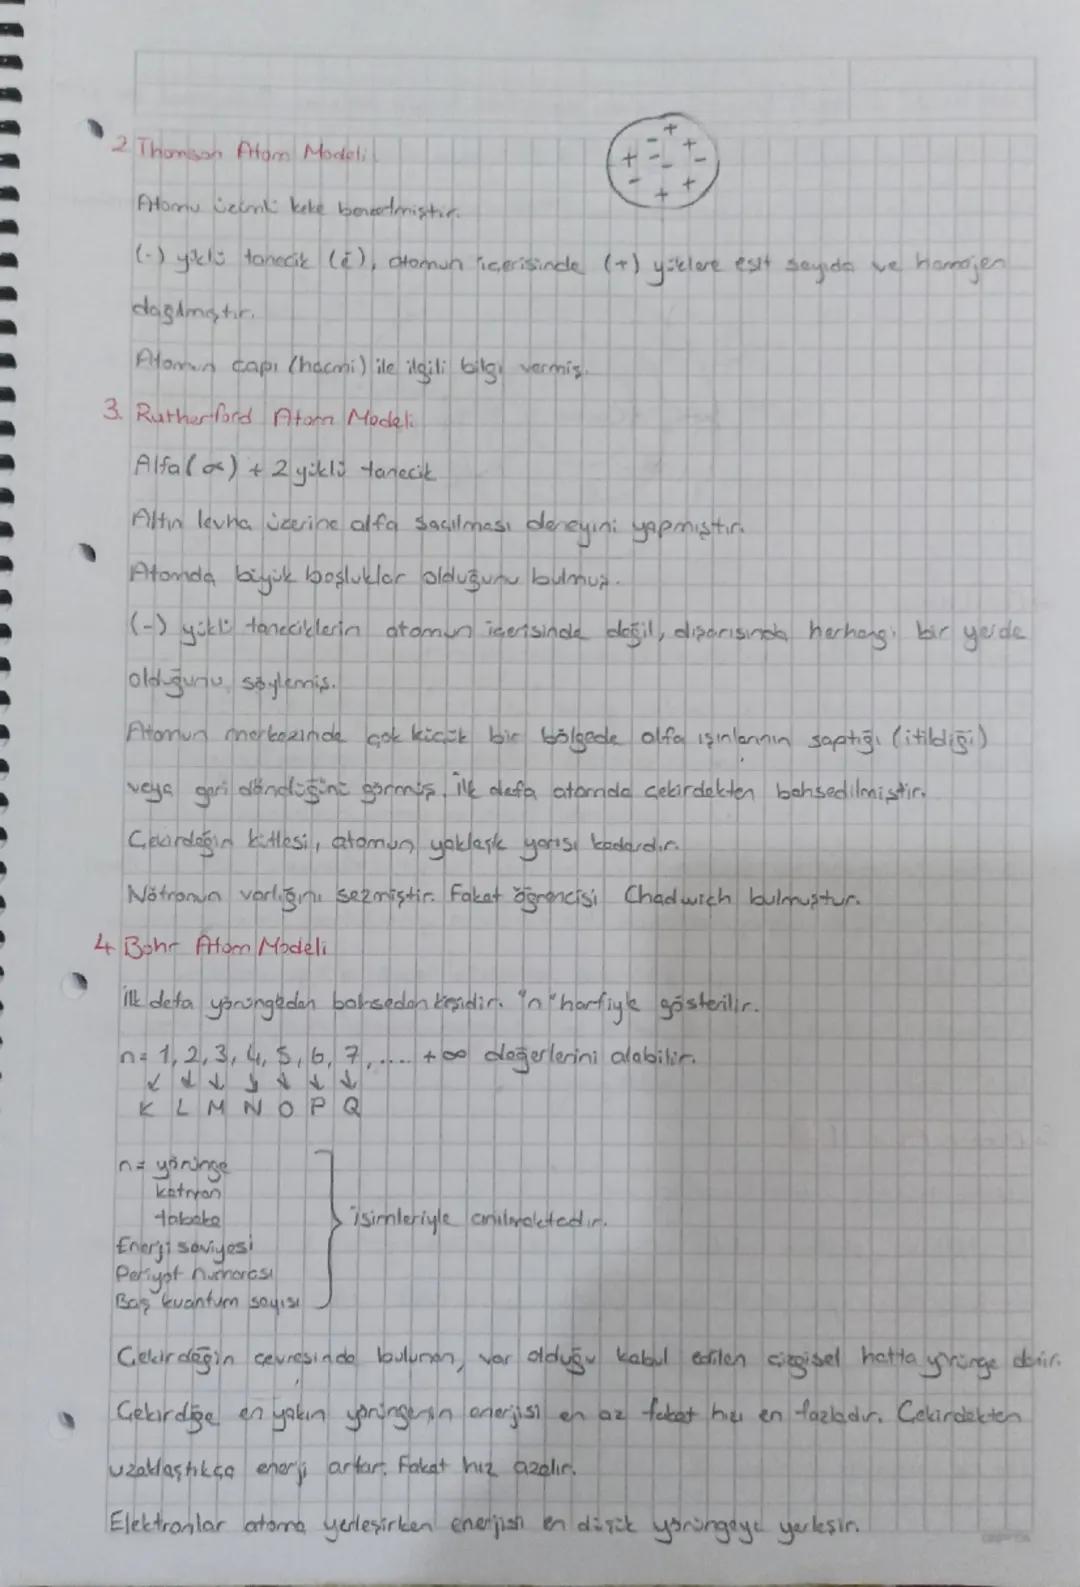 2 Thomson Atom Modeli
Atomu üzümlü keke benzetmiştir.
(-) yüklü tanecik (ē), atomun içerisinde (+) yüklere eşit sayıda ve homojen
dağılmıştır.
Atomun çapı (hacmi) ile ilgili bilgi vermiş.
3. Rutherford Atom Modeli
Alfa (α) + 2 yüklü tanecik
Altın levha üzerine alfa saçılması deneyini yapmıştır.
Atomda büyük boşluklar olduğunu bulmuş.
(-) yüklü taneciklerin atomun içerisinde değil, dışarısında herhangi bir yerde
olduğunu söylemiş.
Atomun merkezinde çok küçük bir bölgede alfa ışınlarının saptığı (itildiği)
veya geri döndüğünü görmüş. İlk defa atomda çekirdekten bahsedilmiştir.
Çekirdeğin kütlesi, atomun yaklaşık yarısı kadardır.
Nötronun varlığını sezmiştir. Fakat öğrencisi Chadwich bulmuştur.
4 Bohr Atom Modeli
İlk defa yörüngeden bahseden kişidir. "n" harfiyle gösterilir.
n= 1, 2, 3, 4, 5, 6, 7, .... +∞ değerlerini alabilir.
↙ ↓ ↓ ↓ ↓ ↓ ↓
K L M N O P Q
n= yörünge
katman
tabaka
isimleriyle anılmaktadır.
Enerji seviyesi
Periyot numarası
Baş kuantum sayısı
Çekirdeğin çevresinde bulunan, var olduğu kabul edilen çizgisel hatta yörünge denir.
Çekirdeğe en yakın yörüngenin enerjisi en az fakat hızı en fazladır. Çekirdekten
uzaklaştıkça enerji artar. Fakat hız azalır.
Elektronlar atoma yerleşirken enerjisi en düşük yörüngeye yerleşir.